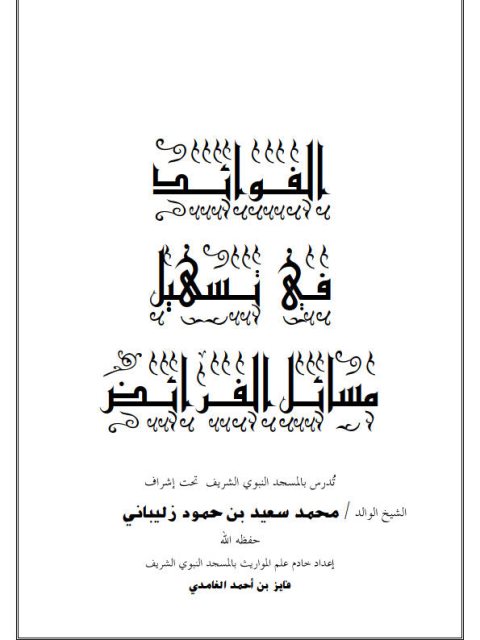 الفوائد
في تسهيل
مسائل الفرائض
تُدرس بالمسجد النبوي الشريف تحت إشراف
الشيخ الوالد / محمد سعيد بن حمود زليباني
حفظه الله
إعداد خادم علم المواريث بالمسجد النبوي الشريف
فايز بن أحمد الغامدي